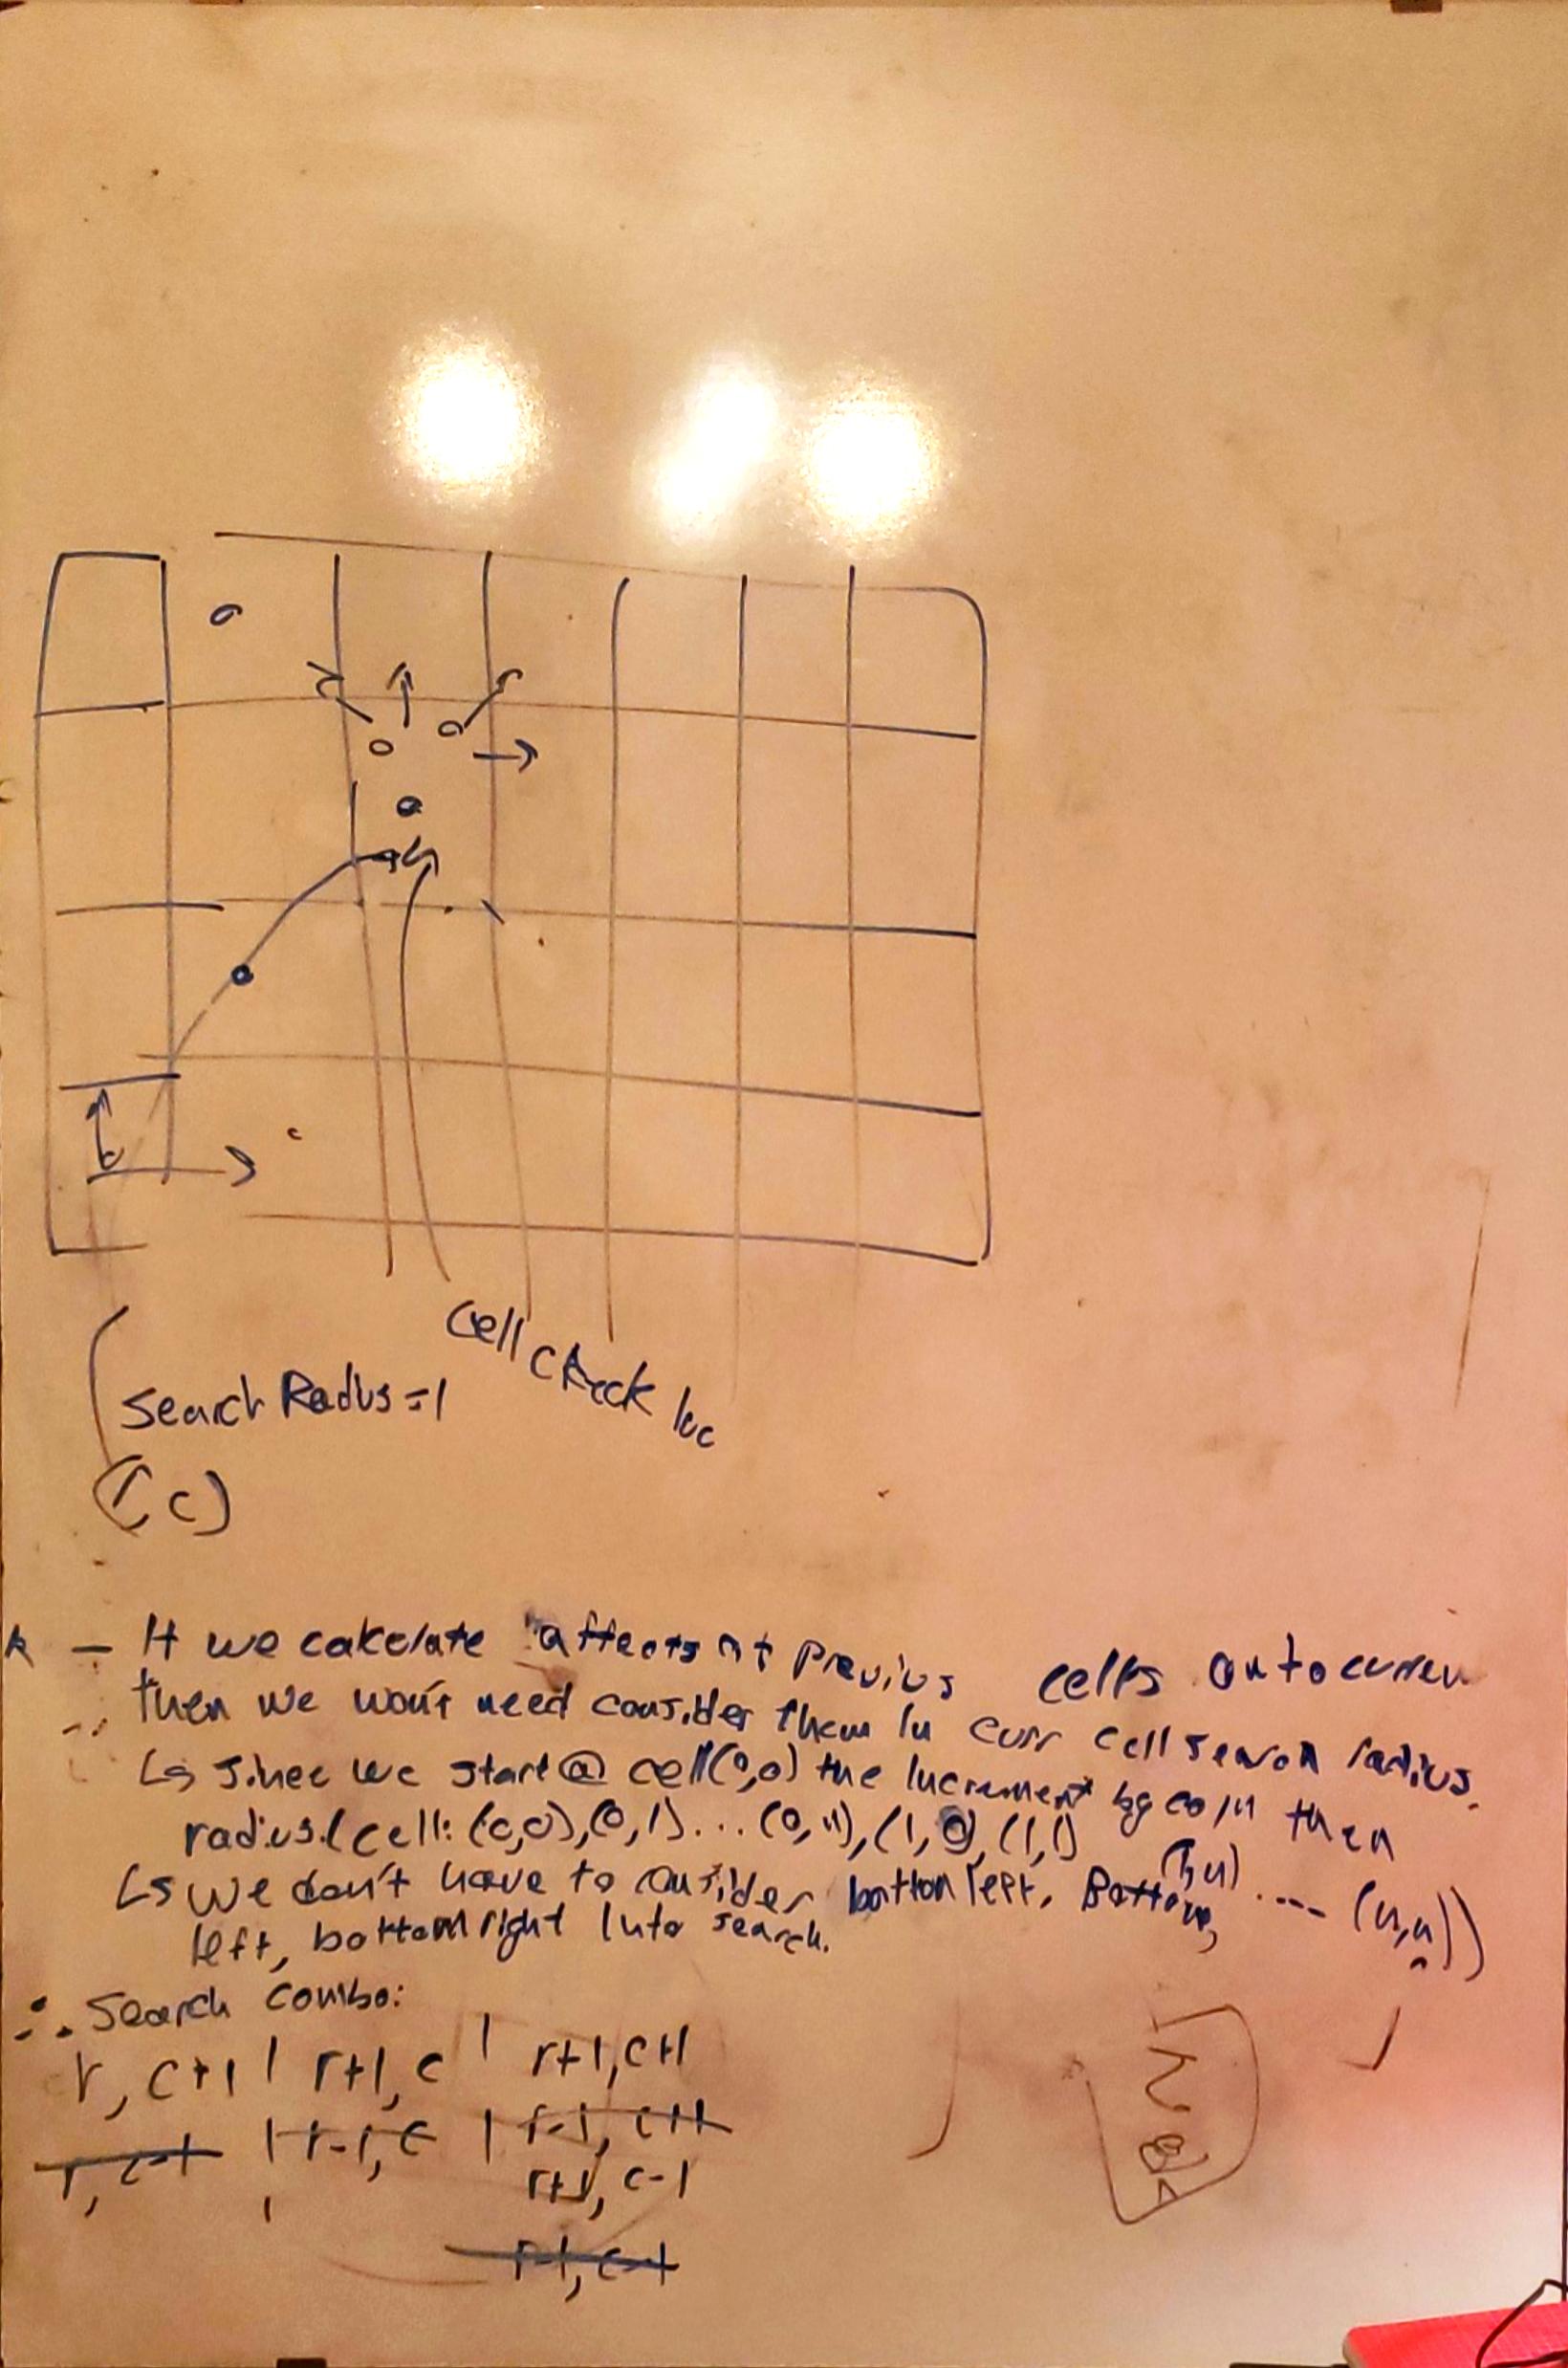 Cell check loc
Search Radius = 1
(r, c)
- If we calculate affects of previus cells onto curren
∴ then we won't need consider them in curr cell search radius.
↳ Since we start @ cell (0,0) the increment by colm then
radius. (cell: (0,0),(0,1)...(0,n),(1,0),(1,1) ... (n,n))
↳ We don't have to consider bottom left, Bottom,
left, bottom right into search.
∴ Search combo:
r, c+1 | r+1, c | r+1, c+1
r, c-1 | r-1, c | r-1, c+1
r+1, c-1
r-1, c-1